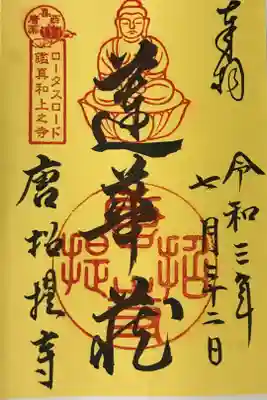 奉拝
令和三年
七月廿二日
蓮華蔵
唐招提寺
ロータスロード
鑑真和上之寺
唐招提寺